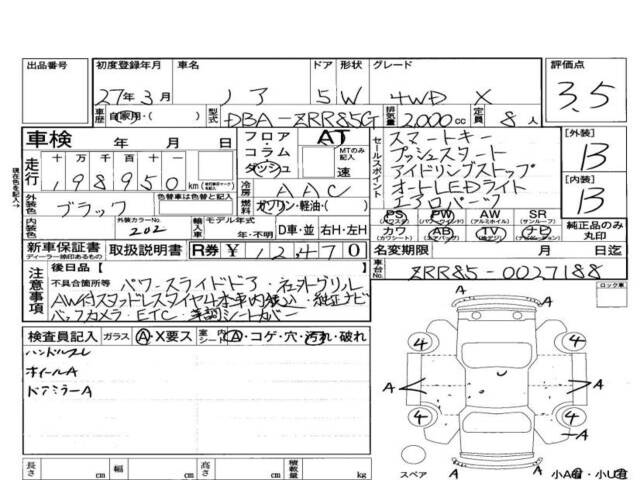 出品番号 初度登録年月 車名 ドア 形状 グレード 評価点
27年3月 ノア 5 W 4WD X 3.5
車歴 自家用・( ) 型式 DBA-ZRR85G 排気量 2,000cc 定員 8人
車検 年 月 日 フロア・コラム・ダッシュ AT セールスポイント スマートキー [外装]
MTのみ記入 プッシュスタート B
走行 十万 万 千 百 十 一 速 アイドリングストップ
198950 km 冷房 AAC オートLEDライト [内装]
外装色 ブラック 色替車は色替と記入 燃料 ガソリン・軽油・( ) エアロパーツ B
内装色 外装カラーNo. 202 輸入車 モデル年式 年・不明 D車・並 右H・左H
PS PW AW SR
(パワステ) (パワーウインド) (アルミホイル) (サンルーフ)
カワ AB TV ナビ 純正品のみ丸印
(カワシート) (エアバッグ)
新車保証書 取扱説明書 R券 ¥12,470 名変期限 月 日迄
ディーラー捺印あるもの
現在色を記入→
注意事項 後日品[ ] 車台No. ZRR85-0027188
不具合箇所等 パワースライドドア・
純正ナビ
バックカメラ・ETC・ シートカバー
ロック車
検査員記入 ガラス A・X要ス 室内 シート A・コゲ・穴・汚れ・破れ
ハンドルスレ
ホイールA
ドアミラーA
A
4 4
A A
4 4
A
A A
スペア
長さ cm 幅 cm 高さ cm 積載量 kg 小A有・小U有